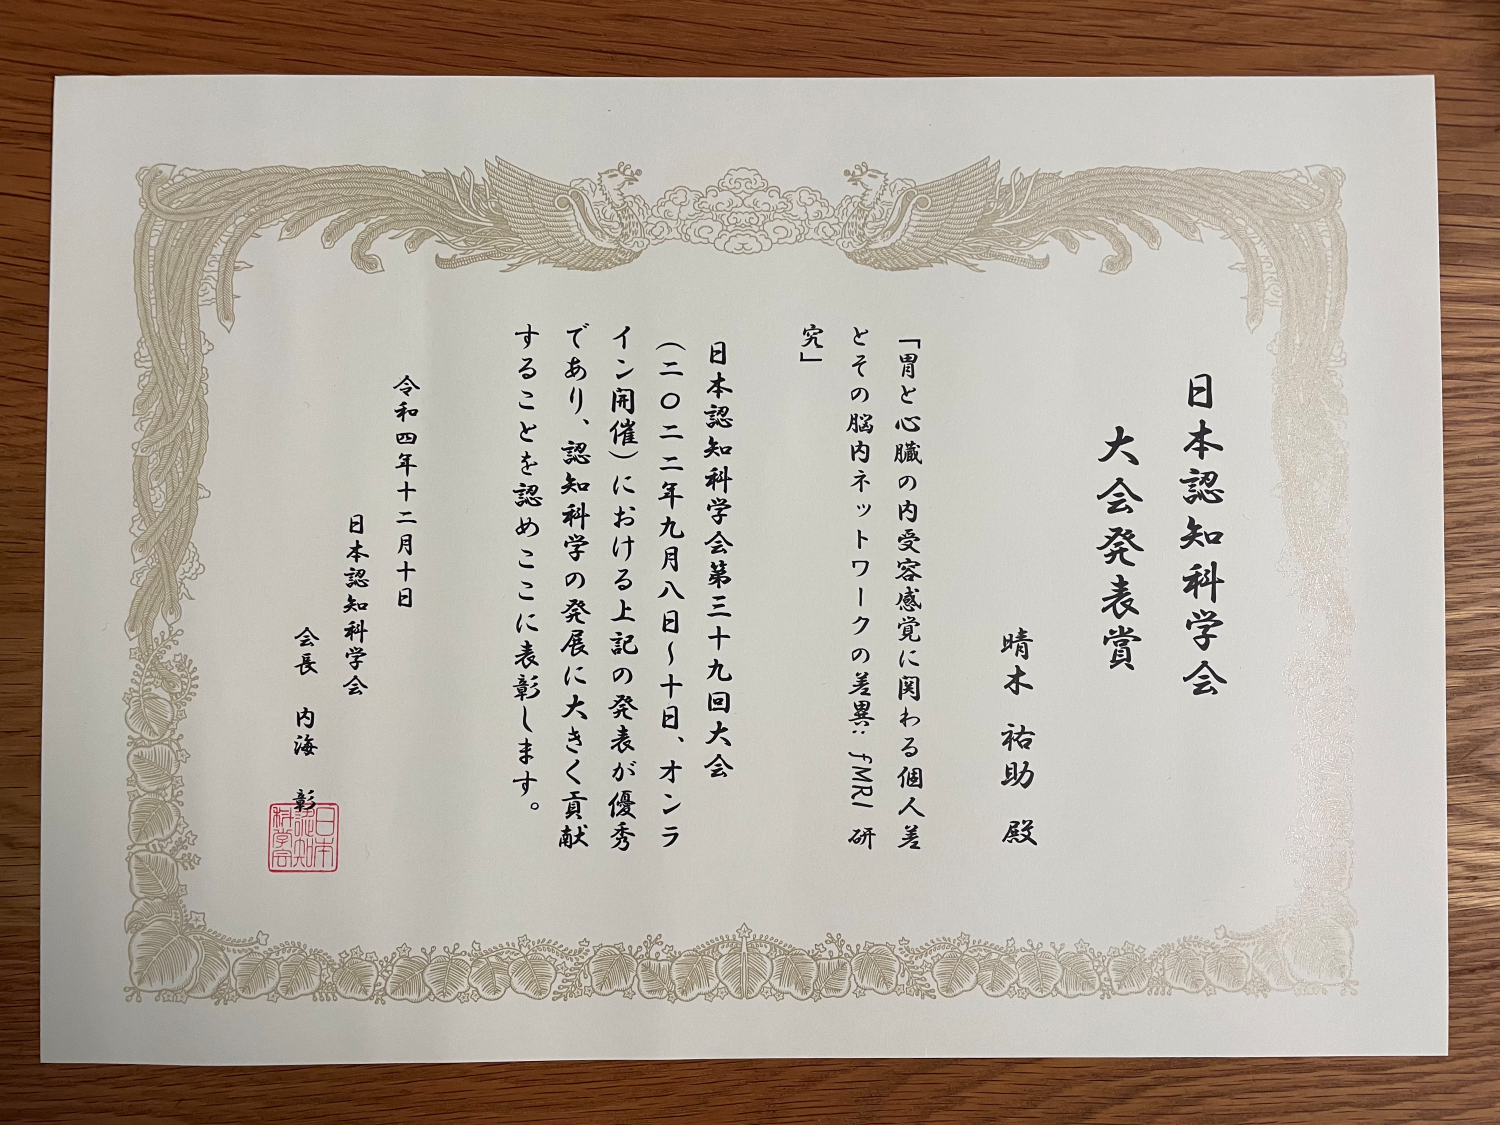 日本認知科学会
大会発表賞
晴木 祐助 殿
「胃と心臓の内受容感覚に関わる個人差
とその脳内ネットワークの差異: fMRI 研
究」
日本認知科学会第三十九回大会
(二〇二二年九月八日~十日、オンラ
イン開催)における上記の発表が優秀
であり、認知科学の発展に大きく貢献
することを認めここに表彰します。
令和四年十二月十日
日本認知科学会
会長 内海 彰
日本
認知
科学会